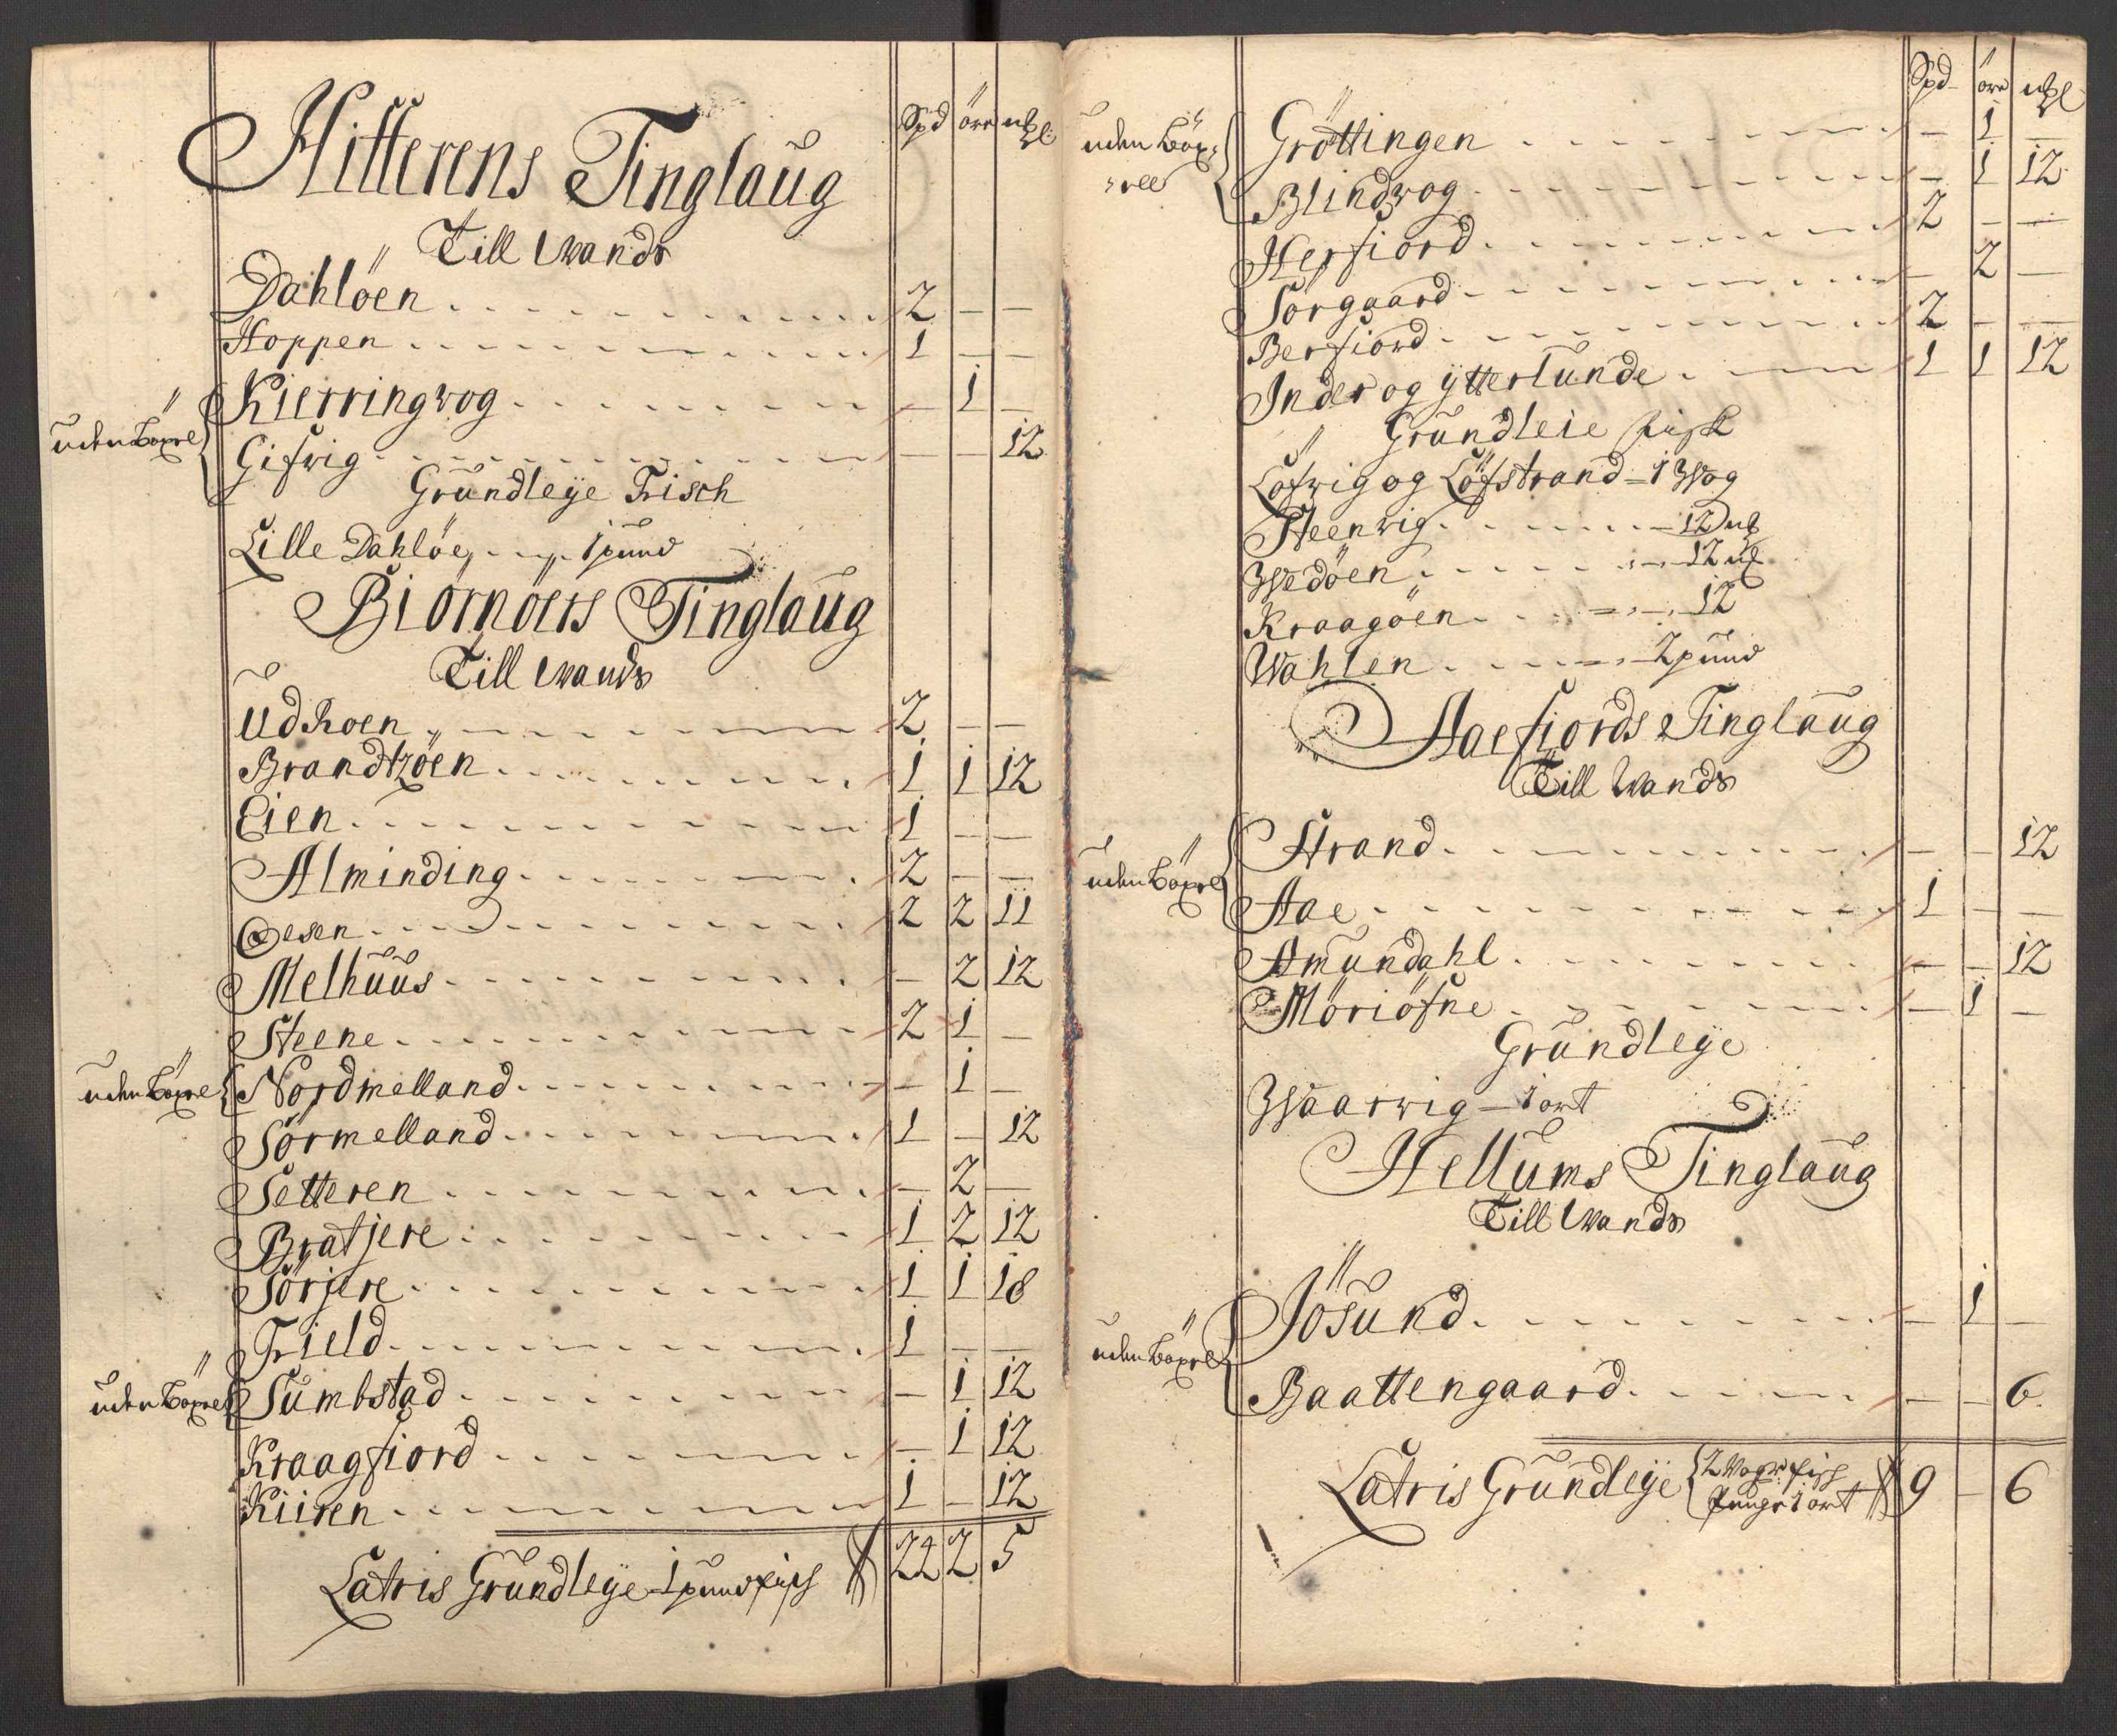 Spd öre ml
Hitterens Tinglaug
Till Wands
Dahlöen . . . 2 — —
Hoppen . . . 1 — —
uden Böxel
Kierringvog . . . — 1 —
Gifvig . . . — — 12
Grundleÿe Fisch
Lille Dahlöe, . . . 1 pund
Biörnöers Tinglaug
Till Wands
Udhoen . . . 2 — —
Brandtzöen . . . 1 1 12
Eien . . . 1 — —
Alminding . . . 2 — —
Oesen . . . 2 2 11
Melhuus . . . — 2 12
Steene . . . 2 1 —
uden Böxel Nordmelland . . . — 1 —
Sörmelland . . . 1 — 12
Setteren . . . — 2 —
Bratjere . . . 1 2 12
Sörjere . . . 1 1 18
Field . . . 1 — —
uden Böxel Sumbstad . . . — 1 12
Kraagfiord . . . — 1 12
Kiiren . . . 1 — 12
Latris Grundleÿe 1 pund fisch 22 2 5
Spd öre ml
uden Böx-
-ell
Gröttingen . . . — 1 —
Blindvog . . . — 1 12
Herfiord . . . 2 — —
Sörgaard . . . — 2 —
Berfiord . . . 2 — —
Inder og ÿtterlunde . . . 1 1 12
Grundleie fisk
Löfvig og Löfstrand — 1 Wog
Steenvig . . . — 12
Wedöen . . . — 12
Kraagöen . . . — 12
Wahlen . . . — 2 pund
Aaefiords Tinglaug
Till Wands
uden Böxel
Strand . . . — — 12
Aae . . . 1 — —
Amundahl . . . — — 12
Möriöfne . . . — 1 —
Grundleÿe
Waarvig — 1 ort
Hellums Tinglaug
Till Wands
uden Böxel
Jösund . . . — 1 —
Baattengaard . . . — — 6
Latris Grundleÿe 2 Woger fisch
Penge 1 ort 9 — 6